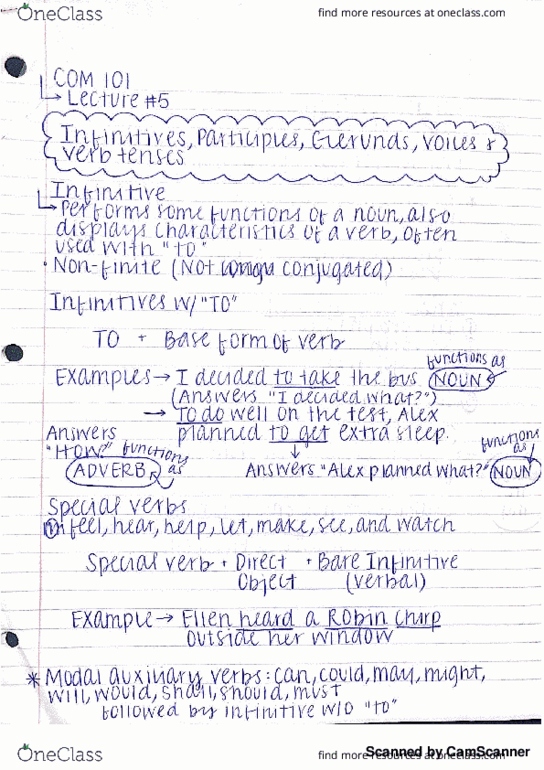 OneClass
find more resources at oneclass.com
COM 101
→ Lecture #5
Infinitives, Participles, Gerunds, Voices +
verb tenses
Infinitive
→ Performs some functions of a noun, also
displays characteristics of a verb, often
used with "to"
• Non-finite (Not conjugated)
Infinitives w/ "TO"
TO + Base form of verb
functions as
Examples → I decided to take the bus NOUN
(Answers "I decided what?")
→ To do well on the test, Alex
planned to get extra sleep.
Answers
"HOW?" functions as
ADVERB
functions as
Answers "Alex planned what?" NOUN
Special verbs
feel, hear, help, let, make, see, and watch
Special verb + Direct + Bare Infinitive
Object (verbal)
Example → Ellen heard a Robin chirp
outside her window
* Modal auxiliary verbs: can, could, may, might,
will, would, shall, should, must
followed by infinitive w/o "to"
OneClass
find more resources at oneclass.com
Scanned by CamScanner